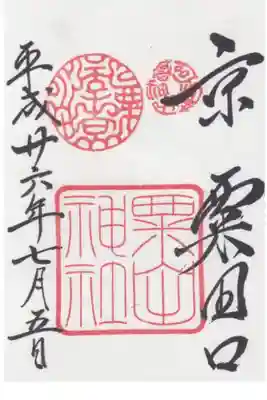 京
粟田口
粟田
神社
平成廿六年七月五日